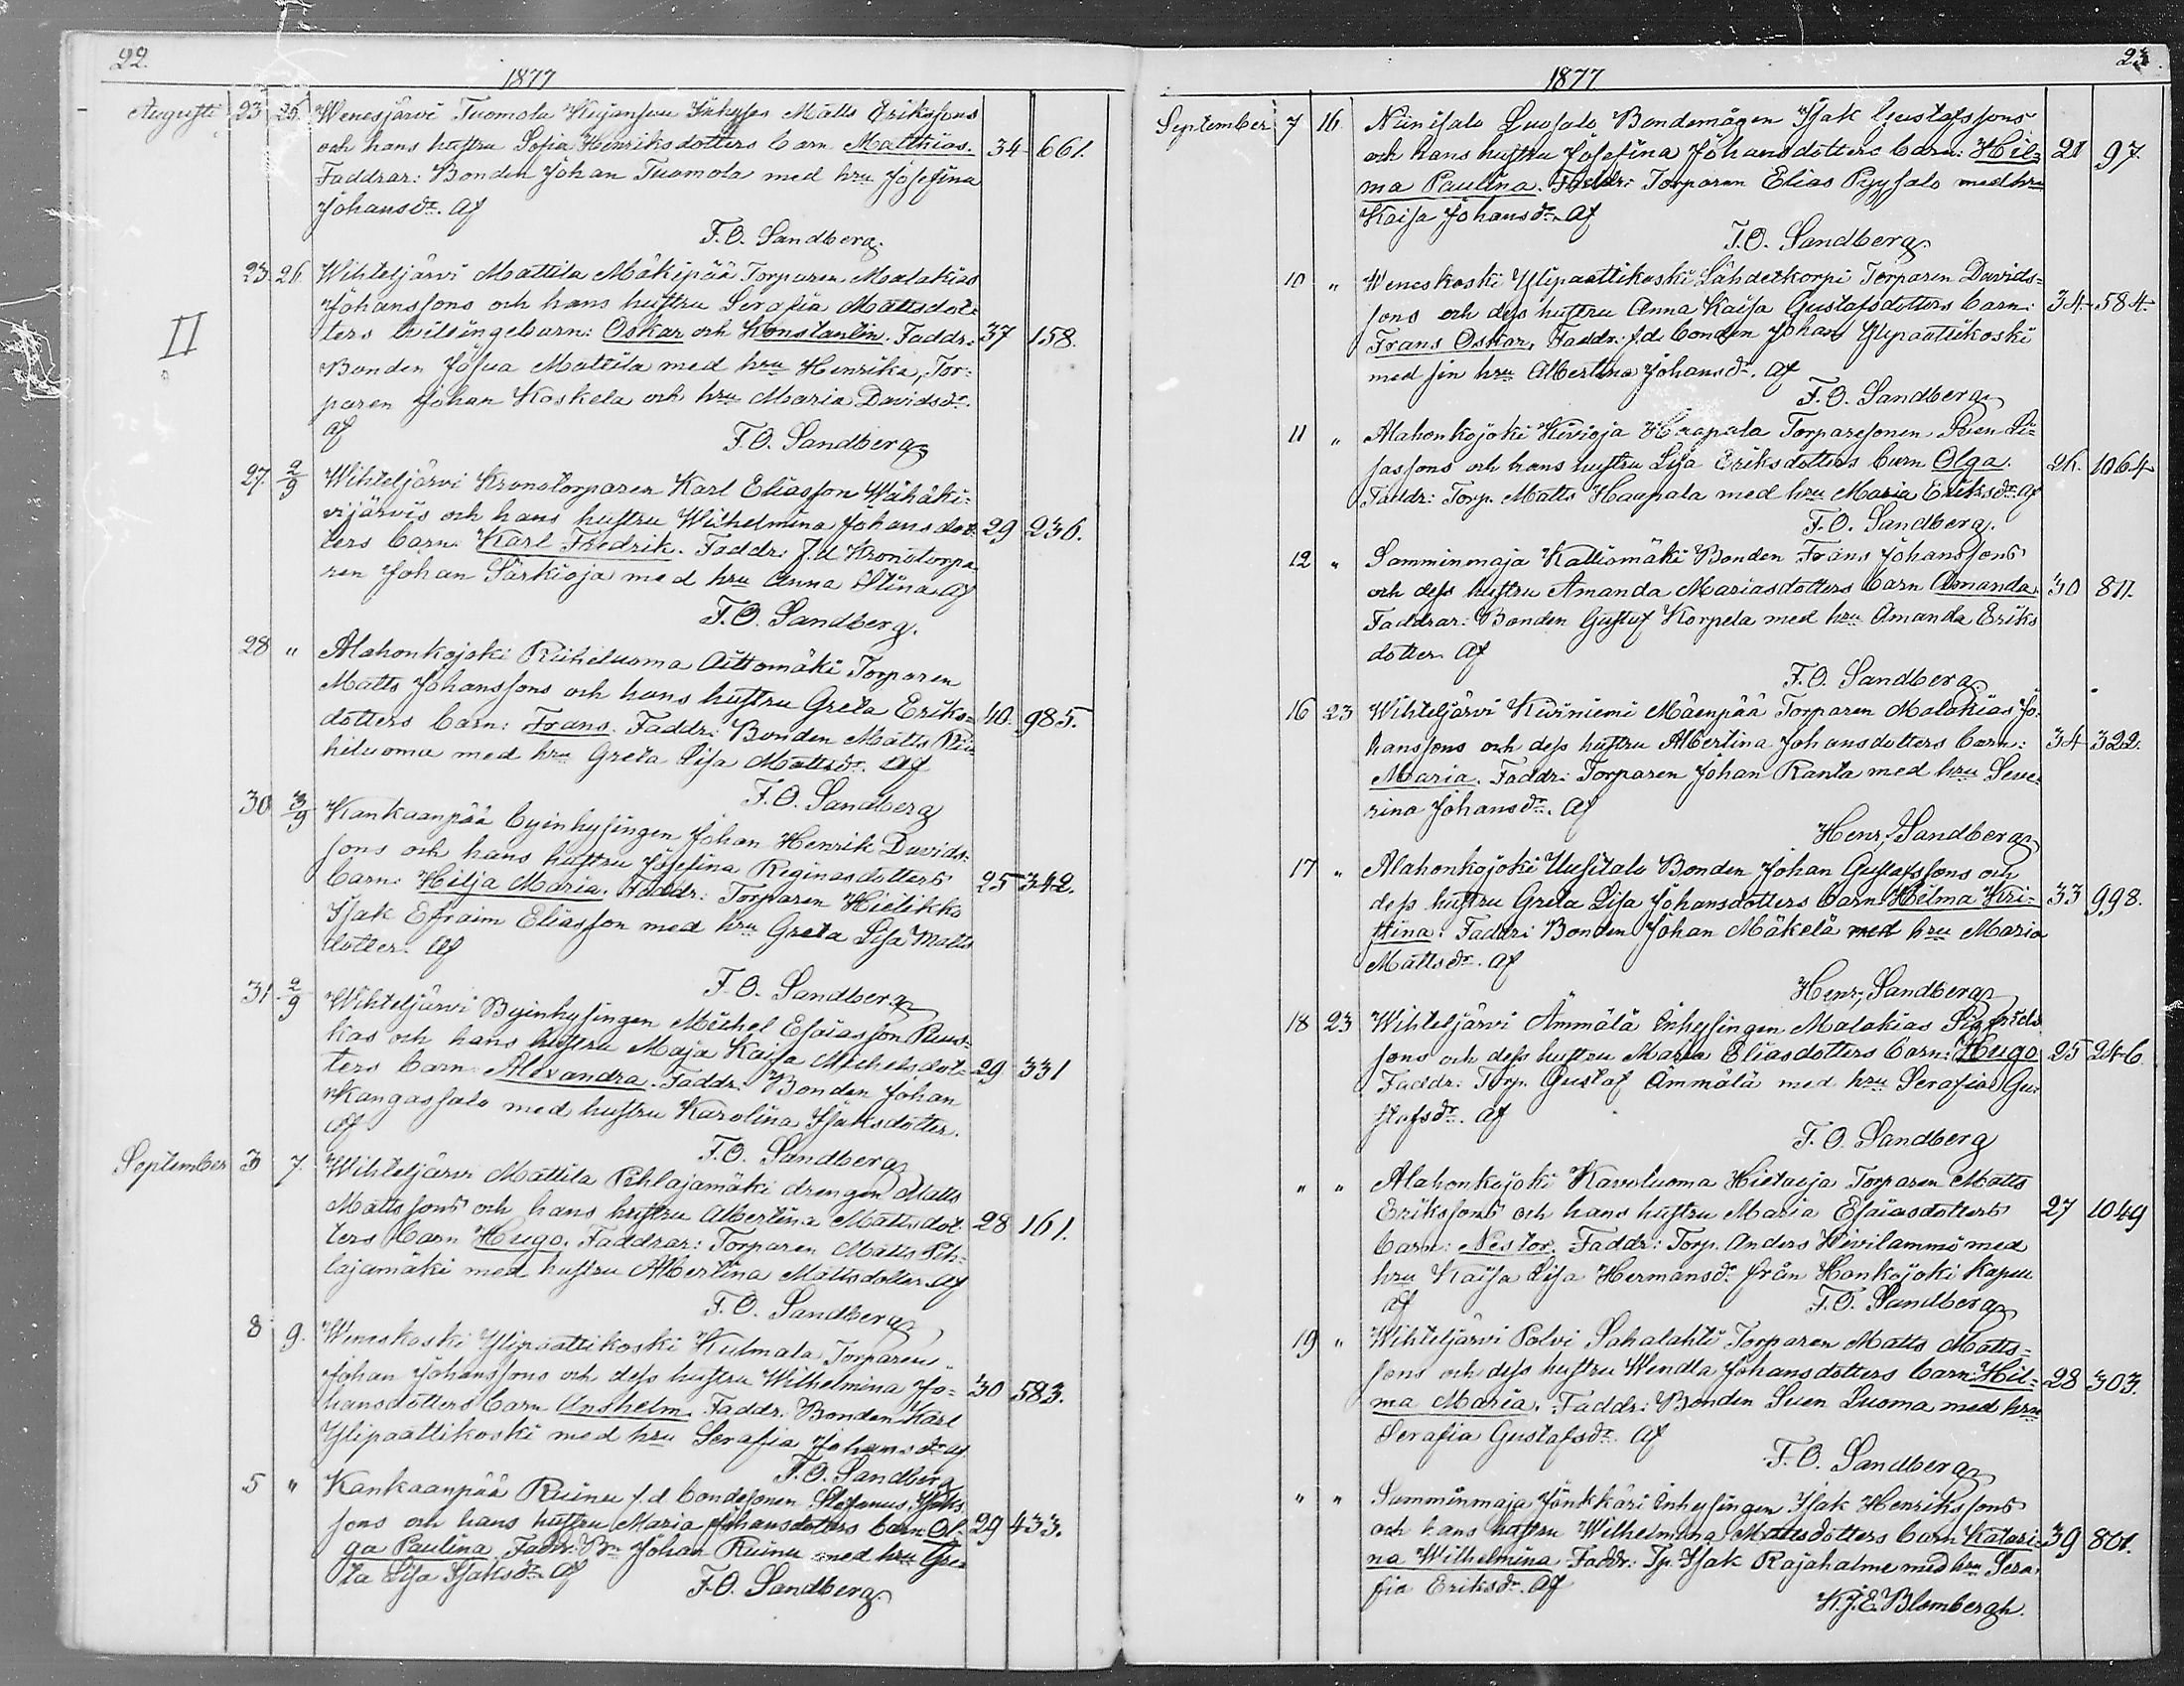 22.
1877
Augusti 23 26. Wenesjärvi Tuomola Kujansuu Inhyses Matts Erikssons
och hans hustru Sofia Henriksdotters barn Matthias. 34 661.
Faddrar: Bonden Johan Tuomola med hru Josefina
Johansdr. Af
F. O. Sandberg.
23. 26. Wihteljärvi Mattila Mäkipää Torparen Malakias
Johanssons och hans hustru Serafia Mattsdot-
ters tvillingebarn: Oskar och Konstantin. Faddr: 37 158.
Bonden Josua Mattila med hru Henrika, Tor-
paren Johan Koskela och hru Maria Davidsdr.
af
F. O. Sandberg
27. 2/9 Wihteljärvi Kronotorparen Karl Eliasson Wähäki-
vijärvis och hans hustru Wilhelmina Johansdot- 29 236.
ters barn. Karl Fredrik. Faddr: f.d. Kronotorpa-
ren Johan Särkioja med hru Anna Stina. Af
F. O. Sandberg.
28 " Alahonkojoki Riiheluoma Aittomäki Torparen
Matts Johanssons och hans hustru Greta Eriks-
dotters barn: Frans. Faddr: Bonden Matts Rii- 40. 985.
hiluoma med hru Greta Lisa Mattsdr. Af
F. O. Sandberg
30 3/9 Kankaanpää byinhysingen Johan Henrik Davids-
sons och hans hustru Josefina Reginasdotters
barn: Hilja Maria. Faddr: Torparen Hietikko 25 342.
Isak Efraim Eliasson med hru Greta Lisa Matts
dotter. Af
F. O. Sandberg
31. 2/9 Wihteljärvi Byinhysingen Michel Esaiasson Ruus-
kas och hans hustru Maja Kaisa Michelsdot-
ters barn Alexandra. Faddr. Bonden Johan 29 331
Kangassalo med hustru Karolina Isaksdotter.
Af
F. O. Sandberg
September 3 7. Wihteljärvi Mattila Pihlajamäki drengen Matts
Mattssons och hans hustru Albertina Mattsdot-
ters barn Hugo. Faddrar: Torparen Matts Pih- 28 161.
lajamäki med hustru Albertina Mattsdotter. Af
F. O. Sandberg
8 9. Weneskoski Ylipaattikoski Kulmala Torparen
Johan Johanssons och dess hustru Wilhelmina Jo- 30 583.
hansdotters barn Anshelm. Faddr. Bonden Karl
Ylipaattikoski med hru Serafia Johansdr. af
F. O. Sandberg
5 " Kankaanpää Ruinu f.d bondesonen Stefanus Isaks-
sons och hans hustru Maria Johansdotters barn Ol- 29 433.
ga Paulina. Faddr. Bn Johan Ruinu med hru Gre-
ta Lisa Isaksdr. Af
F. O. Sandberg.
23.
1877
September 7 16. Niinisalo Luosalo Bondemågen Isak Gustafssons
och hans hustru Josefina Johansdotters barn: Hil- 21 97.
ma Paulina. Faddr: Torparen Elias Pyysalo med hru
Kaisa Johansdr. Af
F. O. Sandberg
10 " Weneskoski Ylipaattikoski Lähdetkorpi Torparen Davids-
sons och dess hustru Anna Kaisa Gustafsdotters barn: 34 584.
Frans Oskar. Faddr: f.d. bonden Johan Ylipaattikoski
med sin hru Albertina Johansdr. Af
F. O. Sandberg
11 " Alahonkojoki Kivioja Haapala Torparesonen Sven Li-
sassons och hans hustru Lisa Eriksdotters barn Olga. 26. 1064
Faddr: Torp. Matts Haapala med hru Maria Eriksdr. af
F. O. Sandberg.
12 " Samminmaja Kalliomäki Bonden Frans Johanssons
och dess hustru Amanda Mariasdotters barn Amanda. 30 811.
Faddrar: Bonden Gustaf Korpela med hru Amanda Eriks
dotter. Af
F. O. Sandberg.
16 23 Wihteljärvi Kiviniemi Mäenpää Torparen Malakias Jo-
hanssons och dess hustru Albertina Johansdotters barn: 34 322.
Maria. Faddr: Torparen Johan Ranta med hru Seve-
rina Johansdr. Af
Henr. Sandberg
17 " Alahonkojoki Uusitalo Bonden Johan Gustafssons och
dess hustru Greta Lisa Johansdotters barn Hilma Kri- 33 998.
stina. Faddr: Bonden Johan Mäkelä med hru Maria
Mattsdr. Af
Henr. Sandberg
18 23 Wihteljärvi Ämmälä Inhysingen Malakias Sigfrids
sons och dess hustru Maria Eliasdotters barn: Hugo 25 246.
Faddr: Torp. Gustaf Ämmälä med hru Serafia Gu-
stafsdr. Af
F. O. Sandberg
" " Alahonkojoki Karoluoma Hietaoja Torparen Matts
Erikssons och hans hustru Maria Esaiasdotters 27 1049
barn: Nestor. Faddr: Torp. Anders Kivilammi med
hru Kaisa Lisa Hermansdr. från Honkojoki kapell
af
F. O. Sandberg
19 " Wihteljärvi Polvi Sahalahti Torparen Matts Matts-
sons och dess hustru Wendla Johansdotters barn: Hil- 28 303.
ma Maria. Faddr: Bonden Sven Luoma med hru
Serafia Gustafsdr. Af
F. O. Sandberg
" " Samminmaja Jänkkäri Inhysingen Isak Henrikssons
och hans hustru Wilhelmina Mattsdotters barn Katari- 39 801.
na Wilhelmina. Faddr: Tp. Isak Rajahalme med hru Sera-
fia Eriksdr. Af
K.J.E. Blombergh.
II